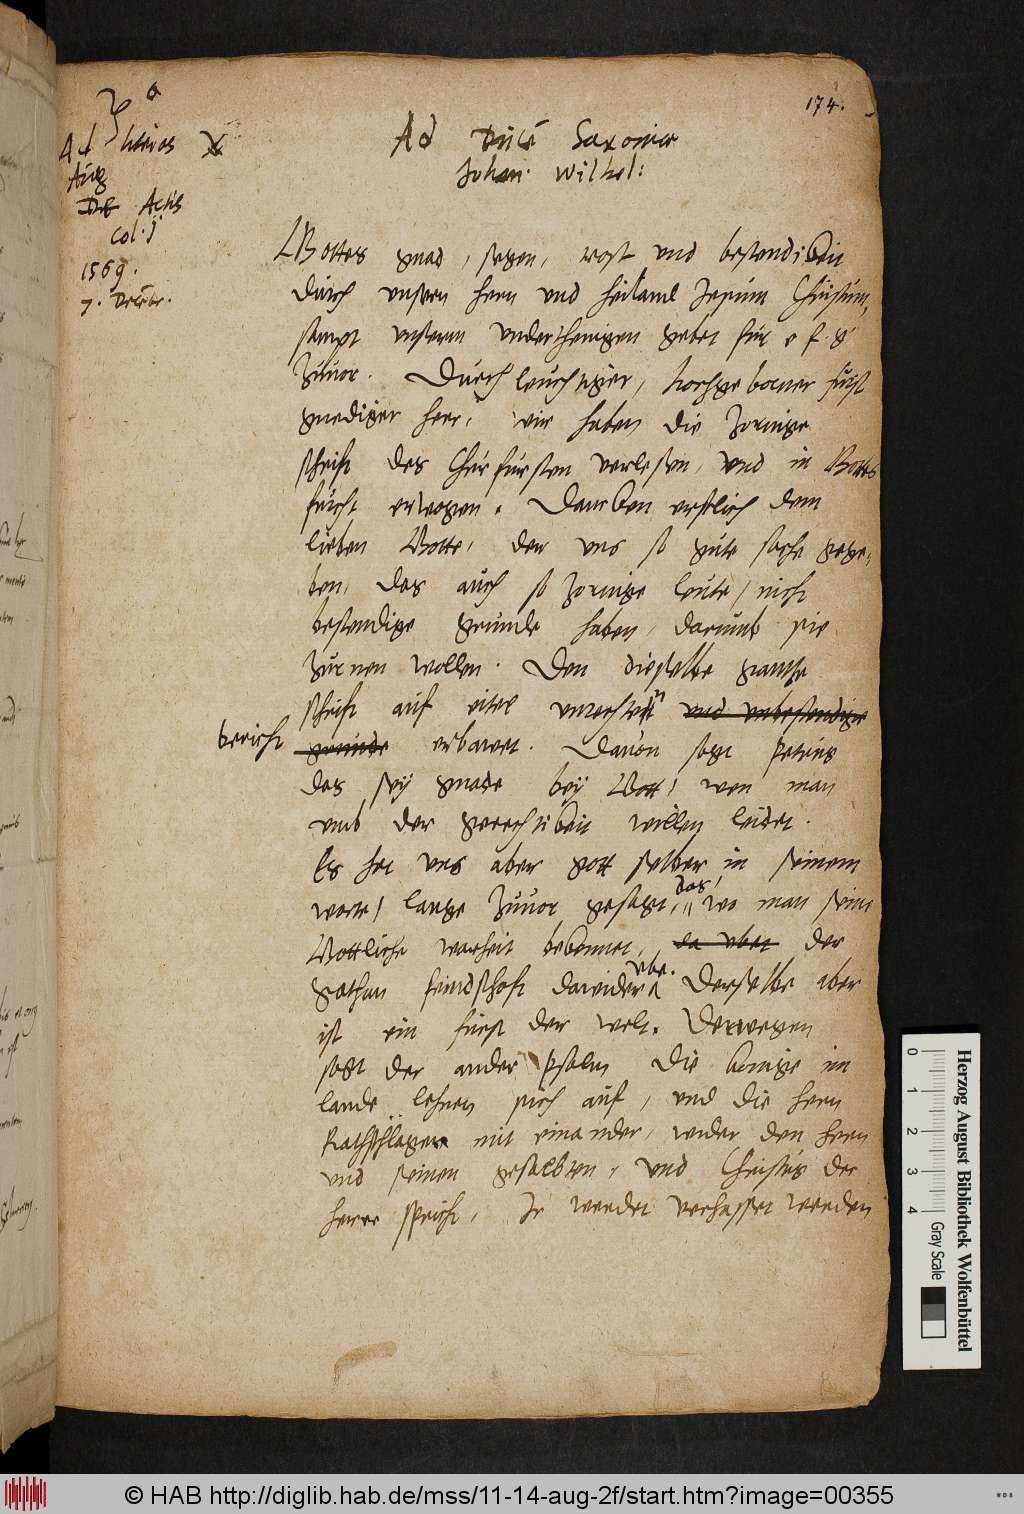 174.
Ad literas
Aug
De Actis
Col. j
1569.
7. Decebr.
Ad Ducē Saxoniae
Johan. Wilhel:
Gottes gnad, segen, trost und bestendikeit
durch unsern hern und heiland Jesum Christum,
sampt unserm underthenigen gebet fur e f g
zuuor. Durchleuchtiger, hochgeborner furst
gnediger herr, wir haben die zornige
schrift des Churfursten verlesen, und in Gottes
furcht erwogen. Dancken erstlich dem
lieben Gotte, der uns so gute sache gege-
ben, das auch so zornige leute, nicht
bestendige grunde haben, darumb sie
zurnen wollen. Den dieselbe gantze
schrift auf eitel unrechten und unbestendige
bericht grunde erbawet. Dauon sagt Petrus
das sey gnade bey Gott, wen man
umb der gerechtikeit willen leidet.
Es hat uns aber gott selber in seinem
worte, lange zuuor gesagt, das, wo man seine
Gottliche warheit bekennet, da ubet der
Sathan feindschaft dawider ube. Derselbe aber
ist ein furst der welt. Derwegen
sagt der ander Psalm Die konige im
lande lehnen sich auf, und die hern
Rathschlagen mit einander, wider den hern
und seinen gesalbten, und Christus der
herre spricht, Ir werdet verhasset werden
Herzog August Bibliothek Wolfenbüttel
Gray Scale
0 1 2 3 4
© HAB http://diglib.hab.de/mss/11-14-aug-2f/start.htm?image=00355